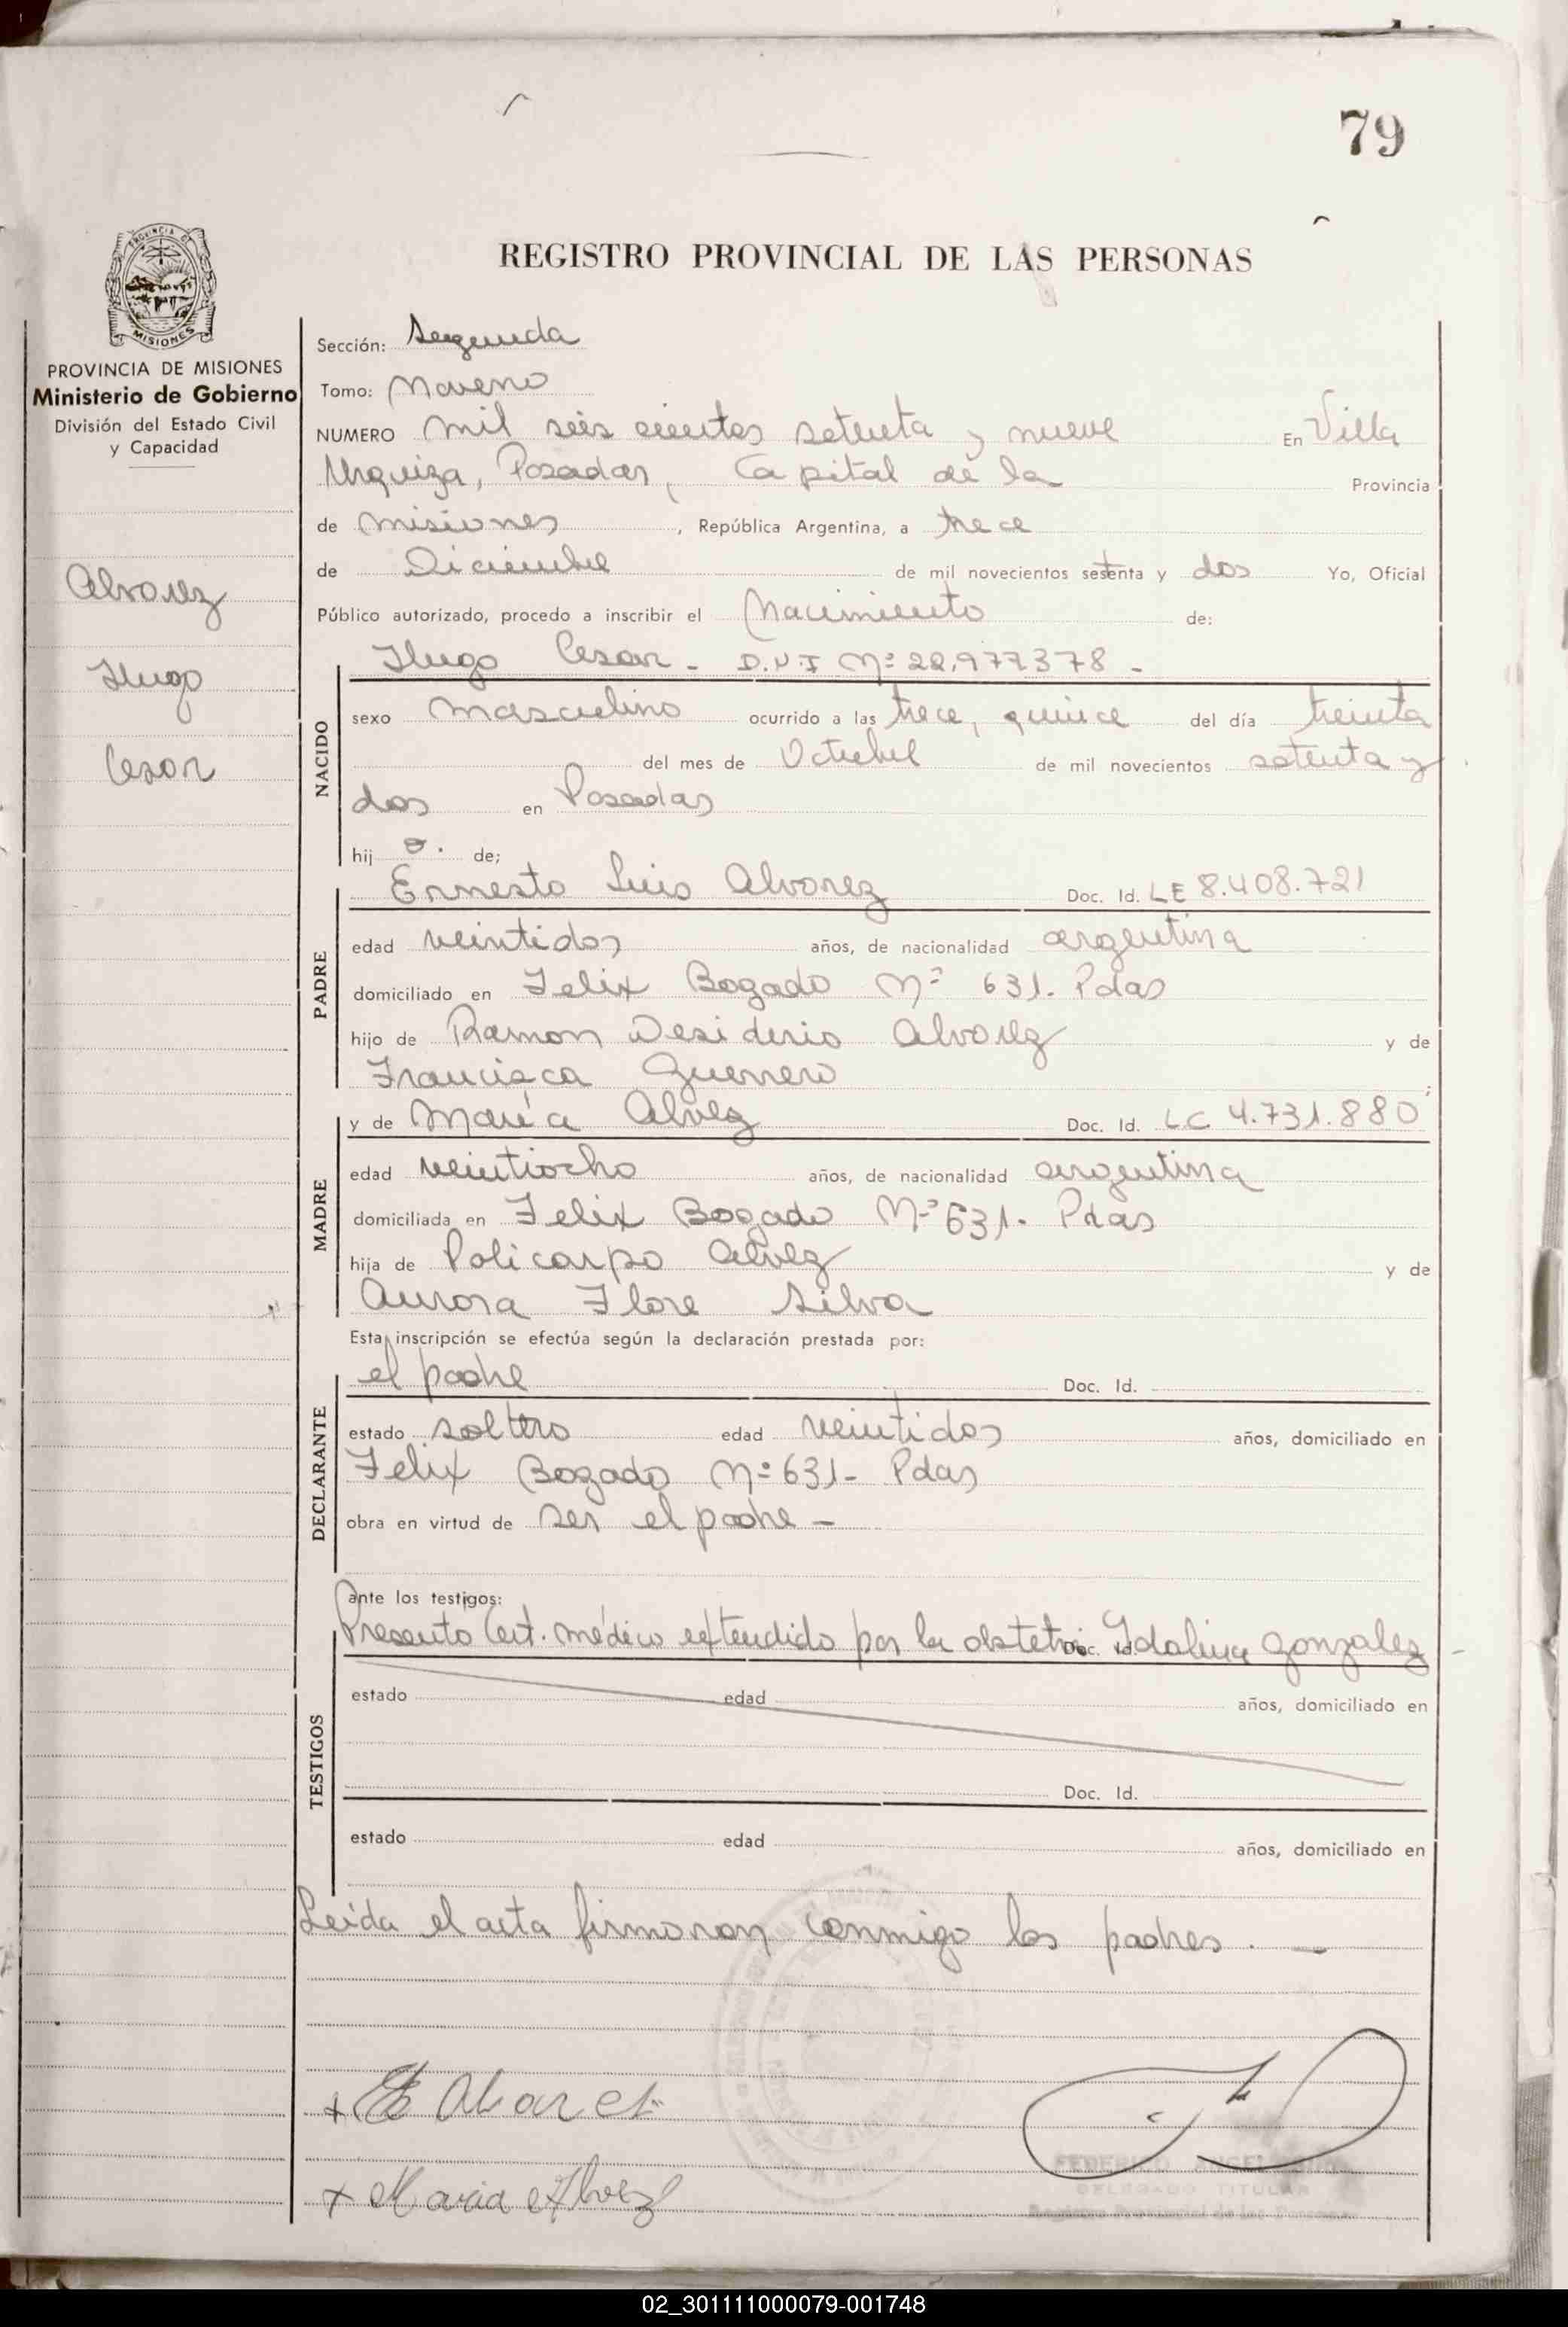 79
REGISTRO PROVINCIAL DE LAS PERSONAS
PROVINCIA DE MISIONES
Ministerio de Gobierno
División del Estado Civil
y Capacidad
Alvarez
Hugo
Cesar
Sección: Segunda
Tomo: Noveno
NUMERO mil seis cientos setenta y nueve En Villa
Urquiza, Posadas, Capital de la Provincia
de Misiones, República Argentina, a trece
de Diciembre de mil novecientos setenta y dos Yo, Oficial
Público autorizado, procedo a inscribir el Nacimiento de:
Hugo Cesar - D.N.I Nº 22.977378 -
NACIDO
sexo masculino ocurrido a las trece, quince del día treinta
del mes de Octubre de mil novecientos setenta y
dos en Posadas
hij o. de;
Ernesto Luis Alvarez Doc. Id. LE 8.408.721
PADRE
edad veintidos años, de nacionalidad argentina
domiciliado en Felix Bogado Nº 631. Pdas
hijo de Ramon Desiderio Alvarez y de
Francisca Guerrero
y de María Alvez Doc. Id. LC 4.731.880
MADRE
edad veintiocho años, de nacionalidad argentina
domiciliada en Felix Bogado Nº 631. Pdas
hija de Policarpo Alvez y de
Aurora Flore Silva
Esta inscripción se efectúa según la declaración prestada por:
el padre Doc. Id.
DECLARANTE
estado soltero edad veintidos años, domiciliado en
Felix Bogado Nº 631- Pdas
obra en virtud de ser el padre -
ante los testigos:
Presento Cert. médico extendido por la obstetri Idalina Gonzalez
Doc. Id.
TESTIGOS
estado edad años, domiciliado en
Doc. Id.
estado edad años, domiciliado en
Leida el acta firmaron conmigo los padres. -
+ E Alvarez
+ Maria Alvez
FEDERICO ANGEL
DELEGADO TITULAR
Registro Provincial de las Personas
02_301111000079-001748